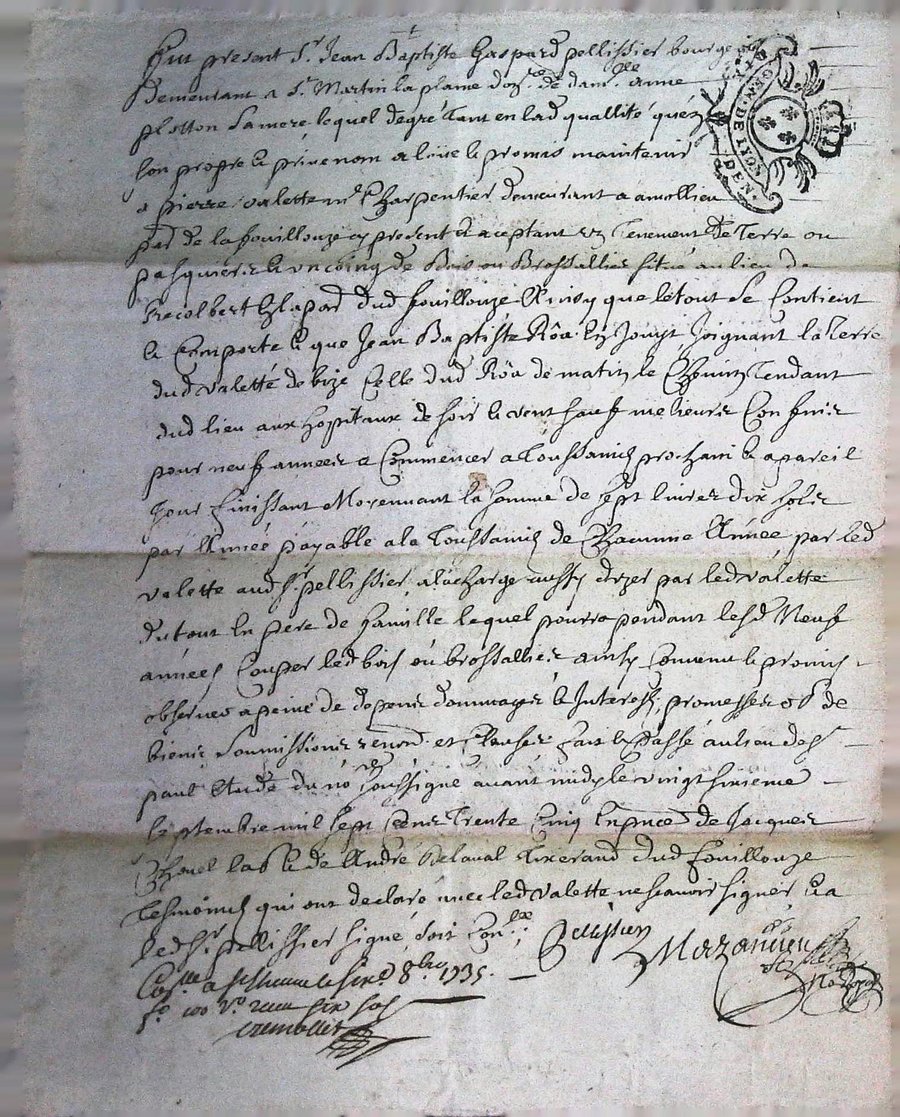 Fut present Sr. Jean Baptiste Gaspard pellissier bourgeois
Demeurant a St. Martin la plaine de damlle. anne
plotton Samere lequel degré tant en lad quallité quen
son propre & privé nom a loüe & promis maintenir
a pierre valette md Charpentier demeurant a amollieu
par de la fouillouze cy present & aceptant un Tenement de Terre ou
pasquiers & un coing de Bois ou Brossallies situé au lieu de
Recolbert Zlapar dud fouillouze Ainsy que le tout Se Contient
& Comporte & que Jean Baptiste Rôa En Jouyt Joignant la Terre
dud valette de bize Celle dud Rôa de matin le Chemin Tendant
dud lieu aux hopitaux de soir & vent sauf meilieurs Confins
pour neuf années a Commencer a Toussainct prochain & a pareil
Jour finissant Moyennant la somme de sept livres dix sols
par Année payable a la Toussainct de Chacunne Année par led
valette aud Sr. pellissier, a la charge aussy duzer par led valette
du tout En pere de famille lequel pourra pendant lesd Neuf
années Couper led bois ou brossallies ainsy Convenu & promis
observer a peine de depens dommages & Interests, promesses ob de
biens Soumissions renon et Clauses fait & Passé au lieu de St
paul Etude du nore soussigné avant midy le vingt sixieme
septembre mil sept Cens Trente Cinq En pnce de Jacques
Chovel lab & de André Delaval Tixerand dud fouillouze
Tesmoins qui ont declaré avec led valette ne scavoir signer & a
led Sr. pellissier signé, soit Conlle.
Pellissier Mazanieu
Conlle a St Estienne le 8bre 1735
fo 100 Vo receu six sols
GEN. DE LYON